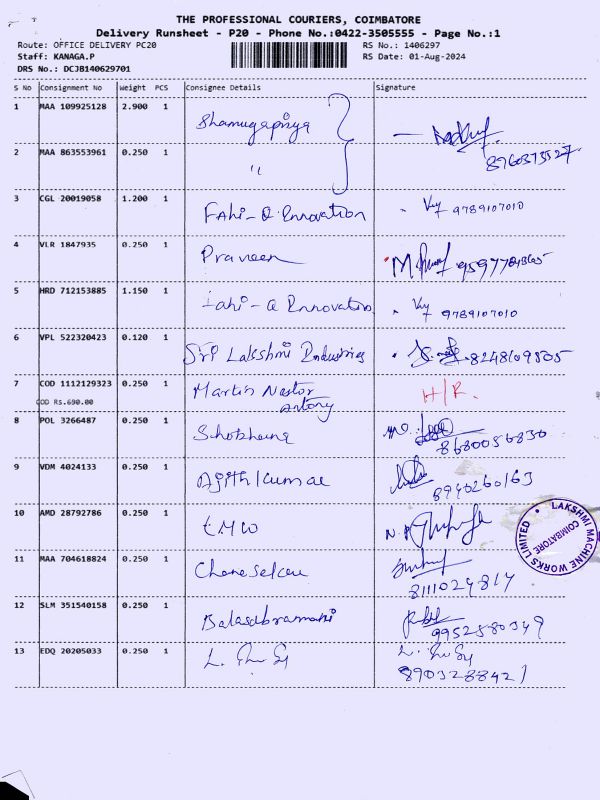 THE PROFESSIONAL COURIERS, COIMBATORE
Delivery Runsheet - P20 - Phone No.:0422-3505555 - Page No.:1
Route: OFFICE DELIVERY PC20 RS No.: 1406297
Staff: KANAGA.P RS Date: 01-Aug-2024
DRS No.: DCJB140629701
S No Consignment No Weight PCS Consignee Details Signature
1 MAA 109925128 2.900 1 Shamugapriya
8760375527
2 MAA 863553961 0.250 1 "
3 CGL 20019058 1.200 1 FAhi-Q Rnnovation 9789107010
4 VLR 1847935 0.250 1 Praveen
5 HRD 712153885 1.150 1 Fahi-Q Rnnovation 9789107010
6 VPL 522320423 0.120 1 Sri Lakshmi Industries 8248109505
7 COD 1112129323 0.250 1 Martin Nestor H/R.
COD Rs.690.00 Antony
8 POL 3266487 0.250 1
8680056830
9 VDM 4024133 0.250 1 Ajithkumar
8940260163
10 AMD 28792786 0.250 1 LMW
LAKSHMI MACHINE WORKS LIMITED
COIMBATORE
11 MAA 704618824 0.250 1
8111024817
12 SLM 351540158 0.250 1 Balasubramani
9952580349
13 EDQ 20205033 0.250 1
8903288421